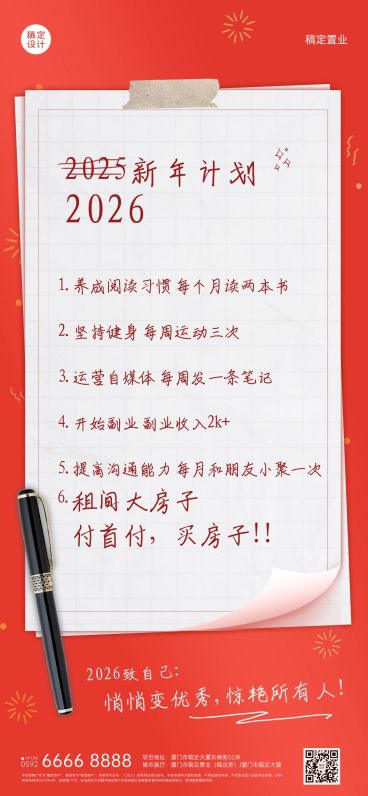 稿定
设计
稿定置业
2025新年计划
2026
1. 养成阅读习惯 每个月读两本书
2. 坚持健身 每周运动三次
3. 运营自媒体 每周发一条笔记
4. 开始副业 副业收入2k+
5. 提高沟通能力 每月和朋友小聚一次
6. 租间大房子
付首付，买房子!!
2026致自己：
悄悄变优秀，惊艳所有人!
VIP LINE
0592 6666 8888
项目地址：厦门市稿定大厦东南侧50米
城市展厅：厦门市稿定置业（稿定旁）/厦门市稿定大厦